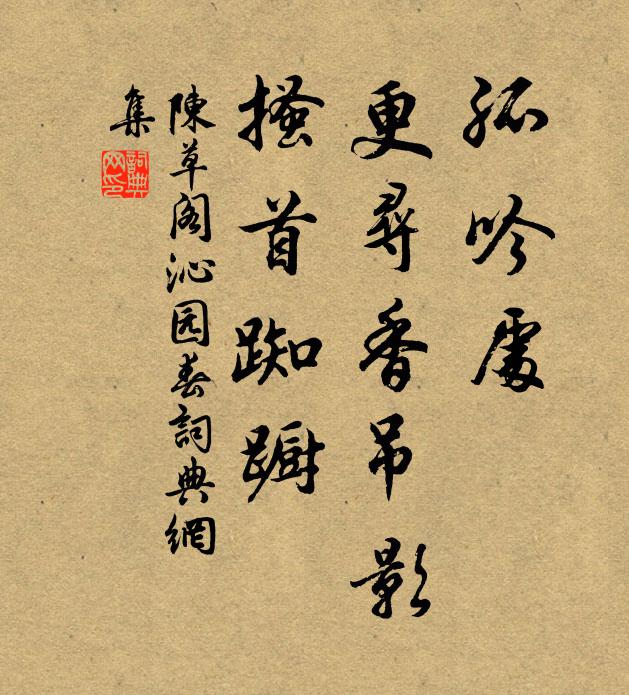 孤吟處
更尋香吊影
搔首踟躕
陳草阁沁园春詞典網
集
詞典网印